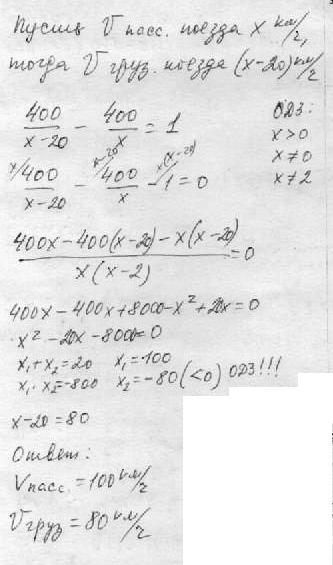 Пусть V пасс. поезда x км/г,
тогда V груз. поезда (x-20) км/г
400/(x-20) - 400/x = 1
ОДЗ:
x>0
x≠0
x≠2
x/ 400/(x-20) - x-20/ 400/x - x(x-20)/ 1 = 0
(400x-400(x-20)-x(x-20))/(x(x-2)) = 0
400x-400x+8000-x²+20x=0
x²-20x-8000=0
x₁+x₂=20 x₁=100
x₁·x₂=-800 x₂=-80 (<0) ОДЗ!!!
x-20=80
Ответ:
Vпасс.=100 км/г
Vгруз=80 км/г